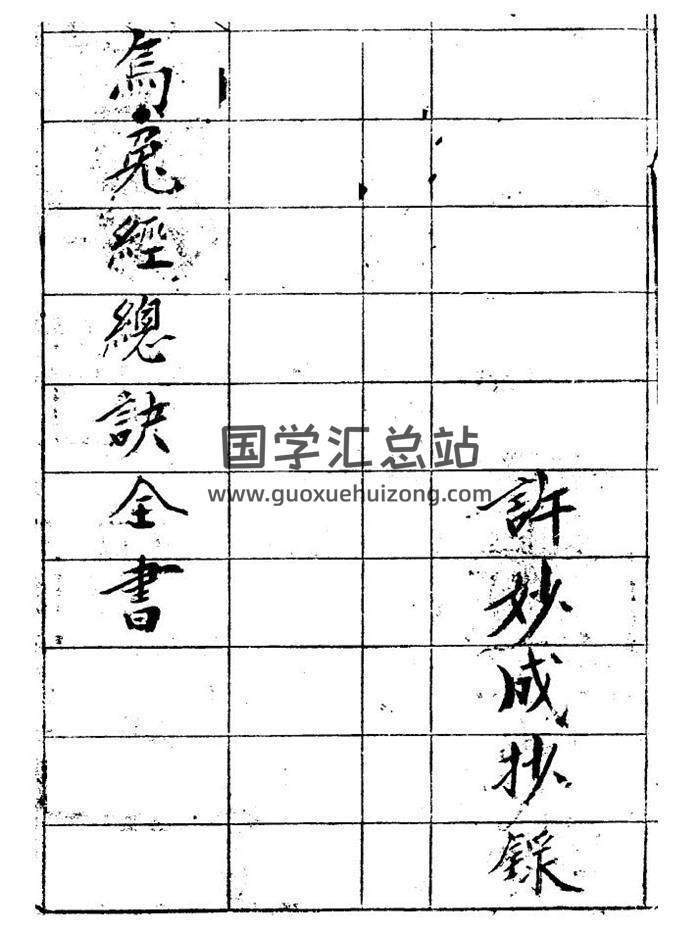 許妙成抄錄
烏兔經總訣全書
国学汇总站
www.guoxuehuizong.com